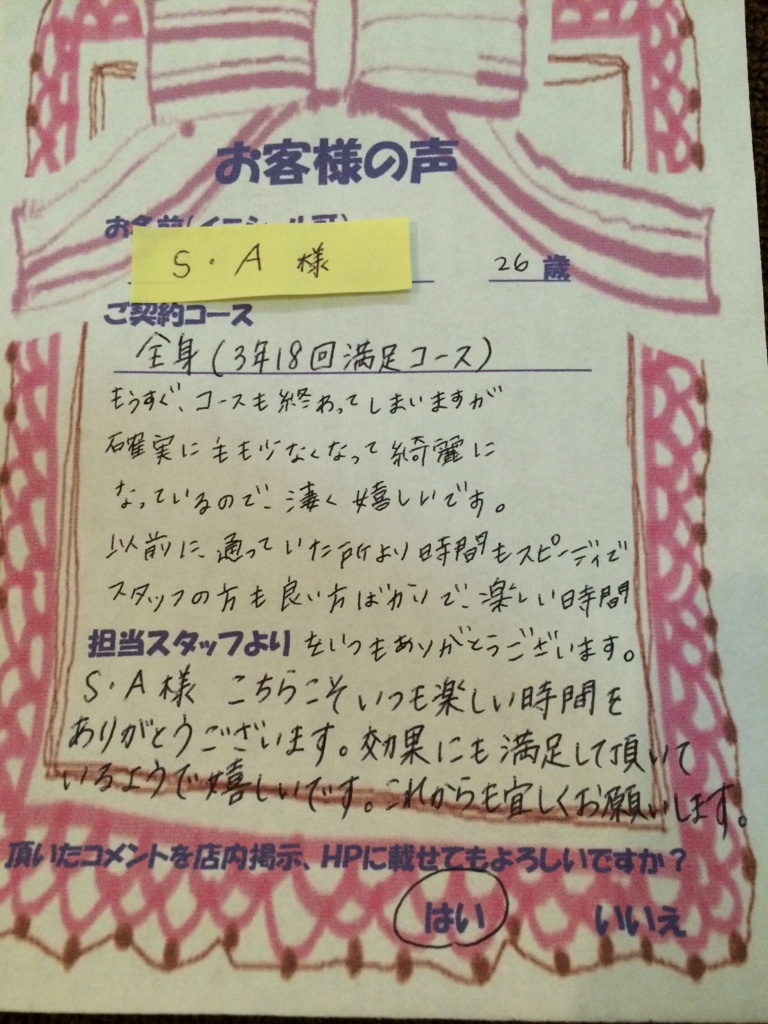 お客様の声
お名前(イニシャル可)
S・A 様 26 歳
ご契約コース
全身(3年18回満足コース)
もうすぐ、コースも終わってしまいますが
確実に毛も少なくなって綺麗に
なっているので、凄く嬉しいです。
以前に、通っていた所より時間もスピーディで
スタッフの方も良い方ばかりで、楽しい時間
担当スタッフより をいつもありがとうございます。
S・A様 こちらこそいつも楽しい時間を
ありがとうございます。効果にも満足して頂いて
いるようで嬉しいです。これからも宜しくお願いします。
頂いたコメントを店内掲示、HPに載せてもよろしいですか?
はい いいえ